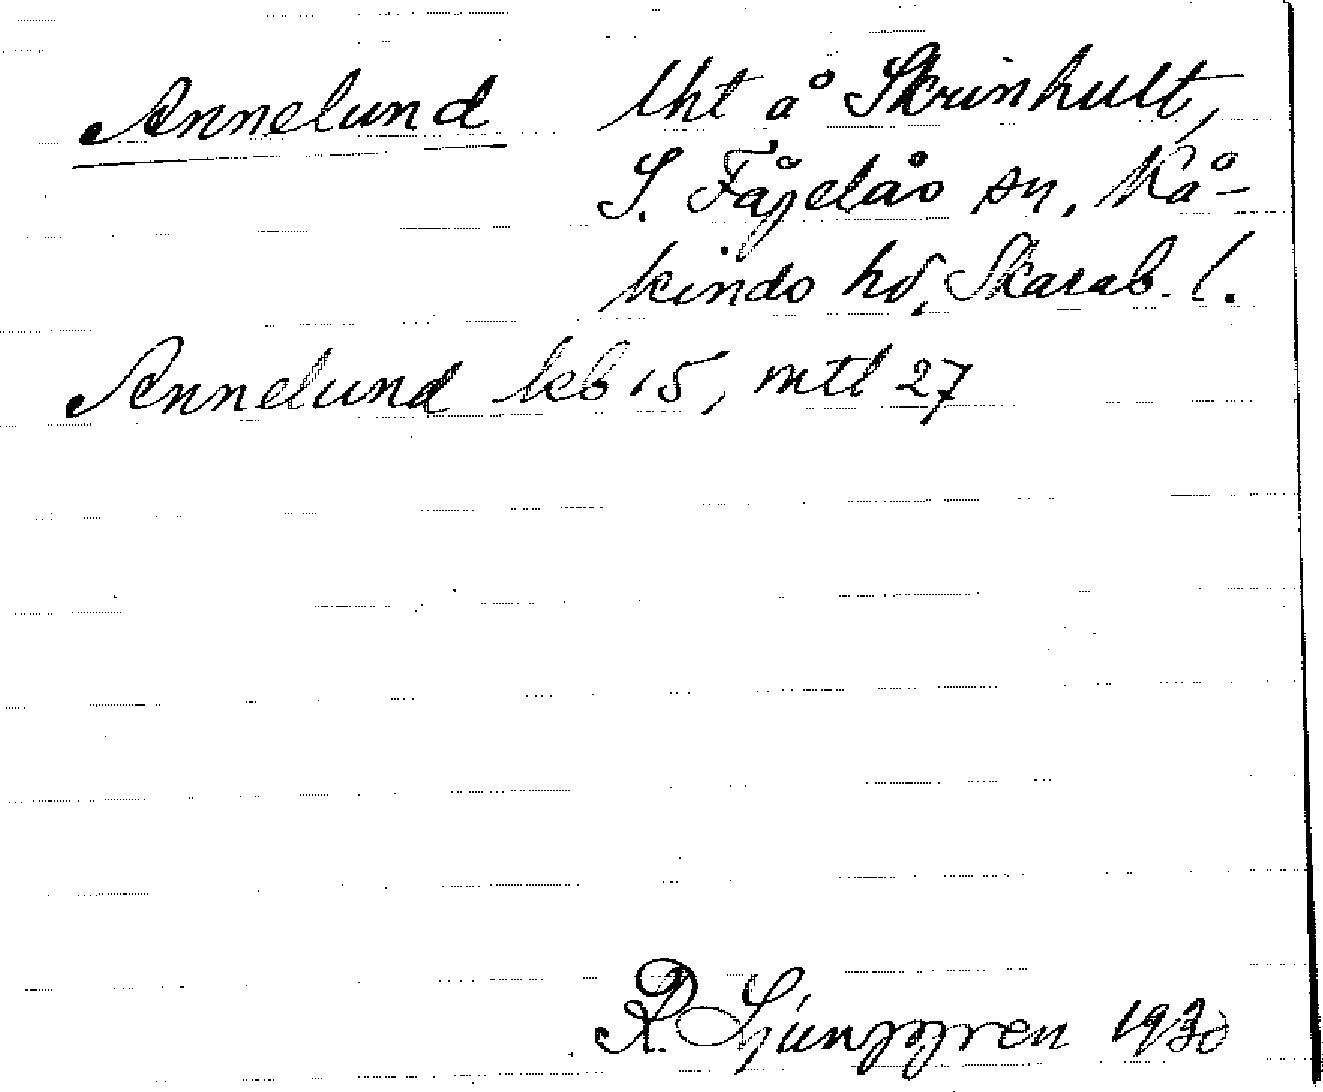 Annelund lht å Skrinhult,
S. Fågelås sn, Kå-
kinds hd, Skarab. l.
Annelund kb 15, mtl 27
R. Ljunggren 1930